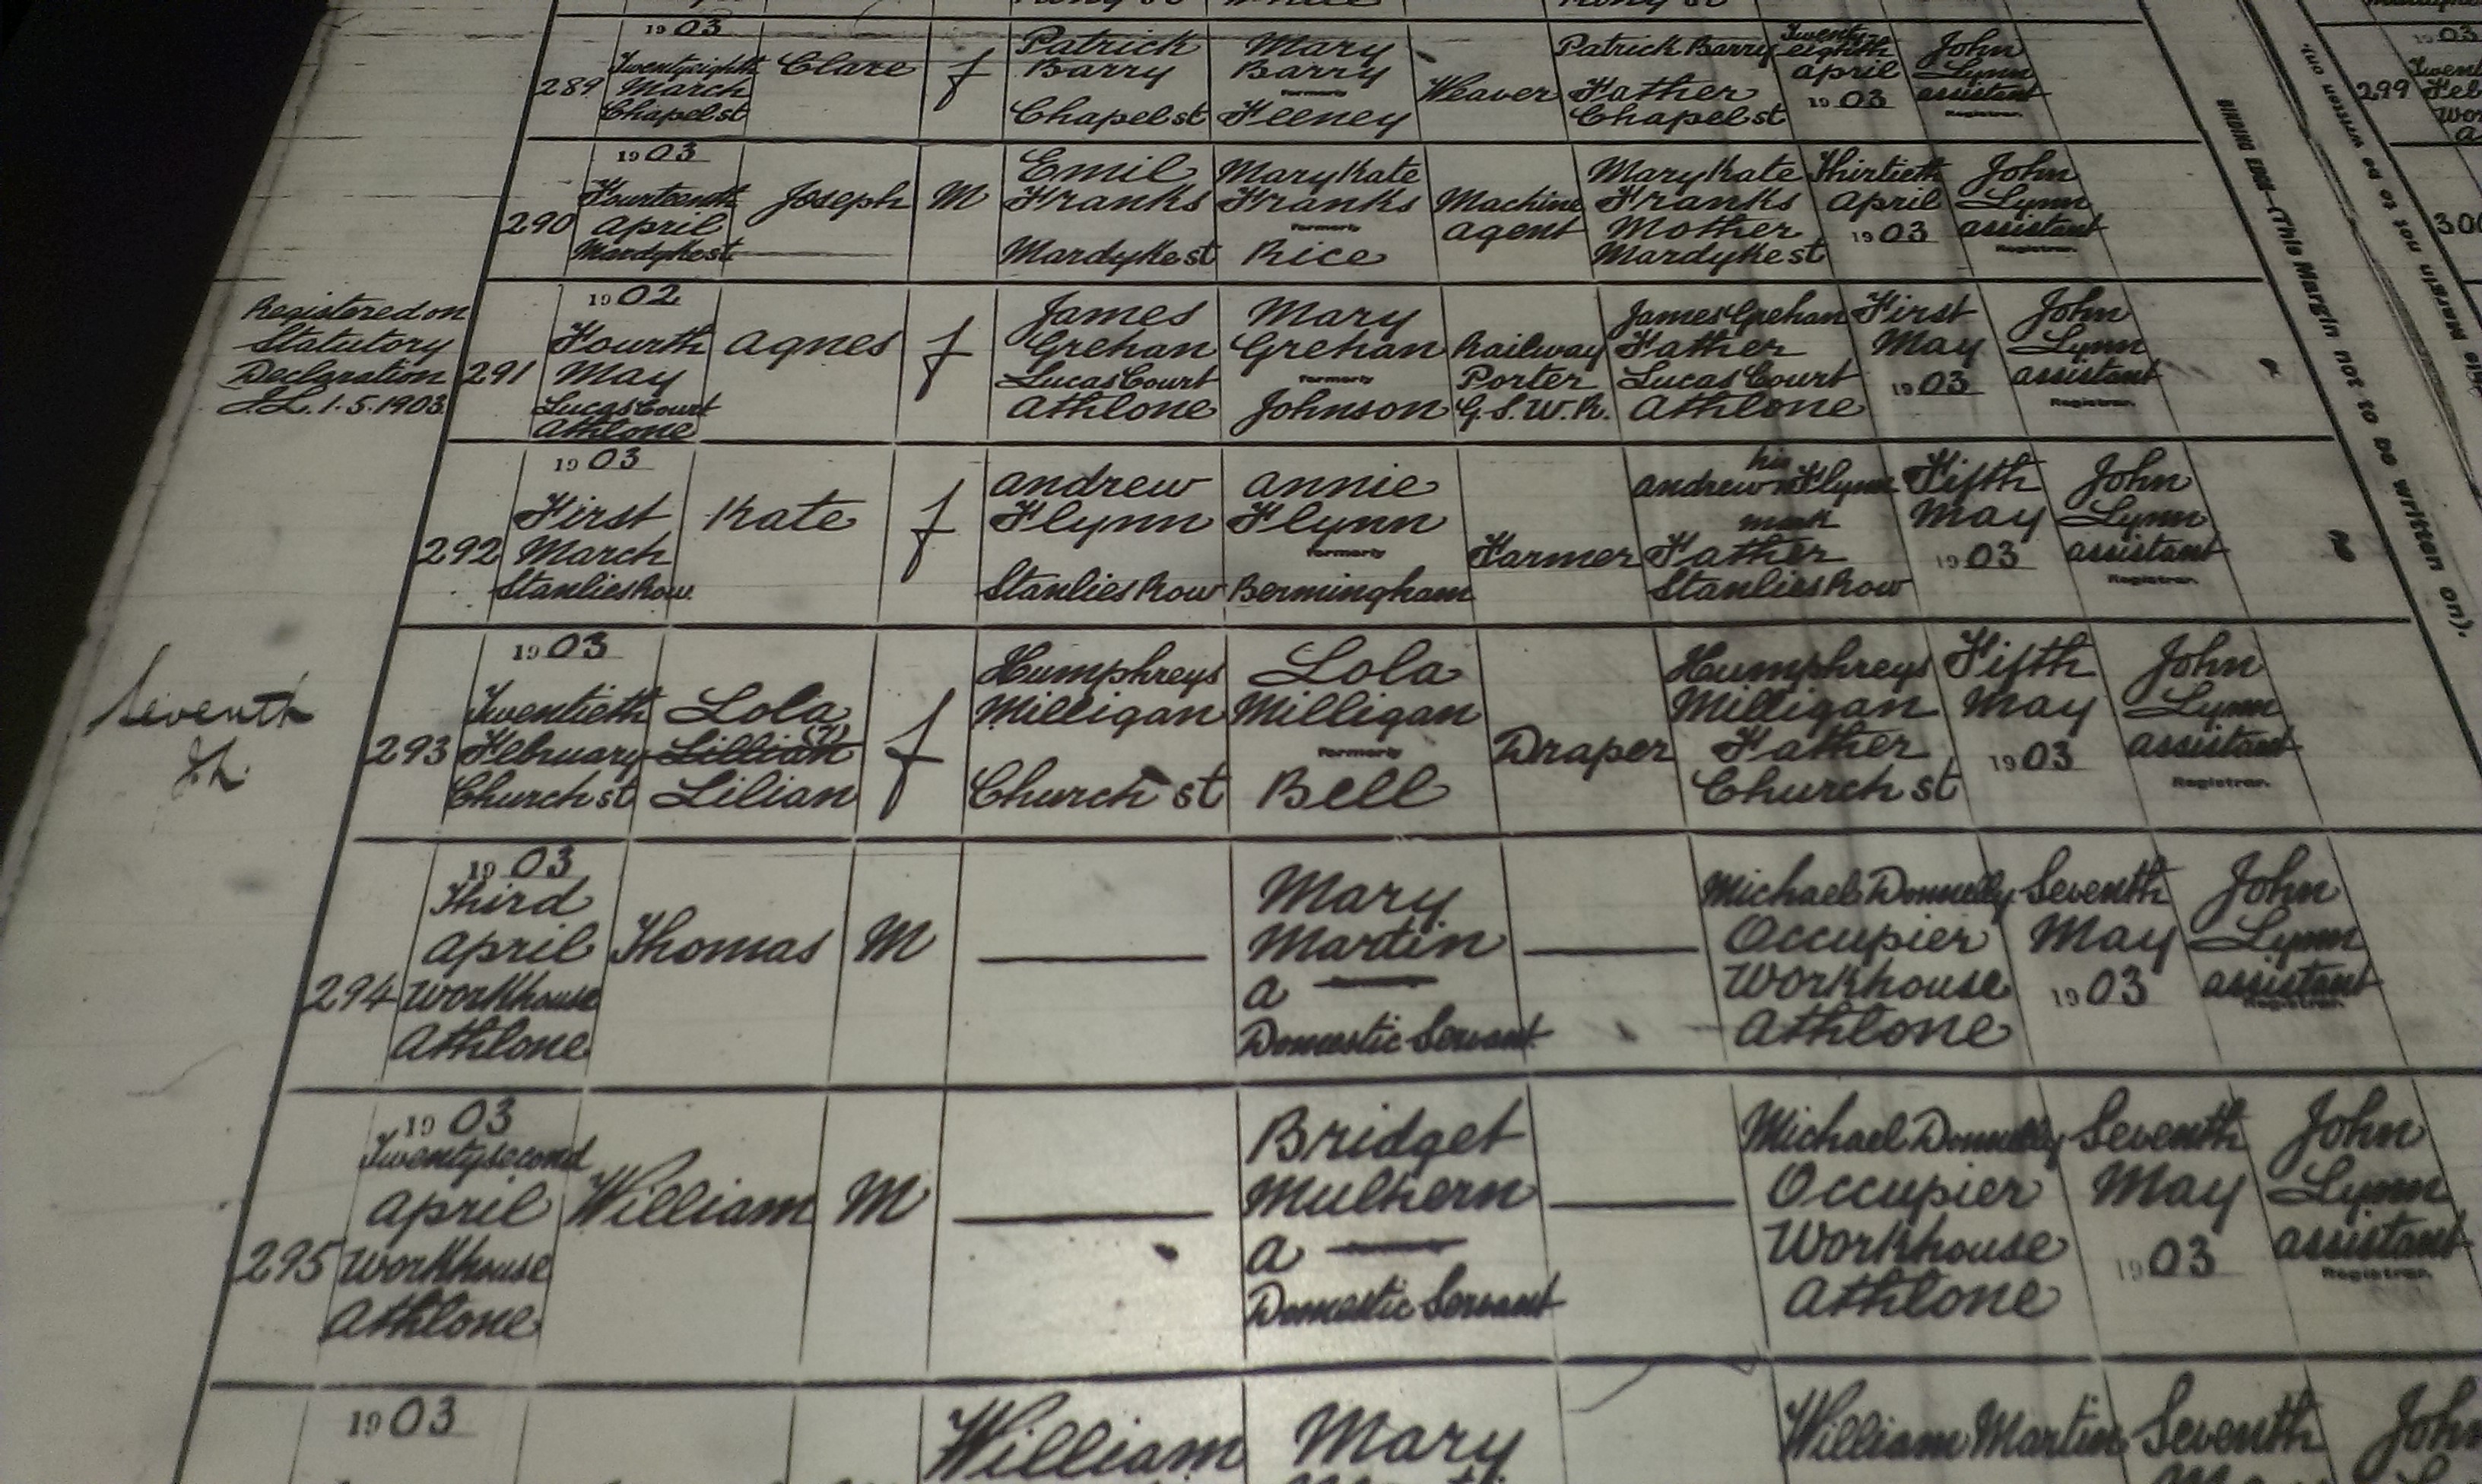 1903
289
Twentyeighth
March
Chapel st
Clare
f
Patrick
Barry
Chapel st
Mary
Barry
formerly
Feeney
Weaver
Patrick Barry
Father
Chapel st
Twenty
eighth
April
1903
John
Lynn
assistant
Registrar.
1903
290
Fourteenth
April
Mardyke st
Joseph
M
Emil
Franks
Mardyke st
Mary Kate
Franks
formerly
Rice
Machine
agent
Mary Kate
Franks
Mother
Mardyke st
Thirtieth
April
1903
John
Lynn
assistant
Registrar.
Registered on
Statutory
Declaration
J.L. 1.5.1903
1902
291
Fourth
May
Lucas Court
Athlone
Agnes
f
James
Grehan
Lucas Court
Athlone
Mary
Grehan
formerly
Johnson
Railway
Porter
G.S.W.R.
James Grehan
Father
Lucas Court
Athlone
First
May
1903
John
Lynn
assistant
Registrar.
1903
292
First
March
Stanlies Row
Kate
f
Andrew
Flynn
Stanlies Row
Annie
Flynn
formerly
Bermingham
Farmer
his
Andrew x Flynn
mark
Father
Stanlies Row
Fifth
May
1903
John
Lynn
assistant
Registrar.
Seventh
1903
293
Twentieth
February
Church st
Lola
Lillian
Lilian
f
Humphreys
Milligan
Church st
Lola
Milligan
formerly
Bell
Draper
Humphreys
Milligan
Father
Church st
Fifth
May
1903
John
Lynn
assistant
Registrar.
1903
294
Third
April
Workhouse
Athlone
Thomas
M
Mary
Martin
a
Domestic Servant
Michael Donnelly
Occupier
Workhouse
Athlone
Seventh
May
1903
John
Lynn
assistant
Registrar.
1903
295
Twentysecond
April
Workhouse
Athlone
William
M
Bridget
Mulhern
a
Domestic Servant
Michael Donnelly
Occupier
Workhouse
Athlone
Seventh
May
1903
John
Lynn
assistant
Registrar.
1903
William
Mary
William Martin
Seventh
John
BINDING EDGE—(This Margin not to be written on).
1903
299
300